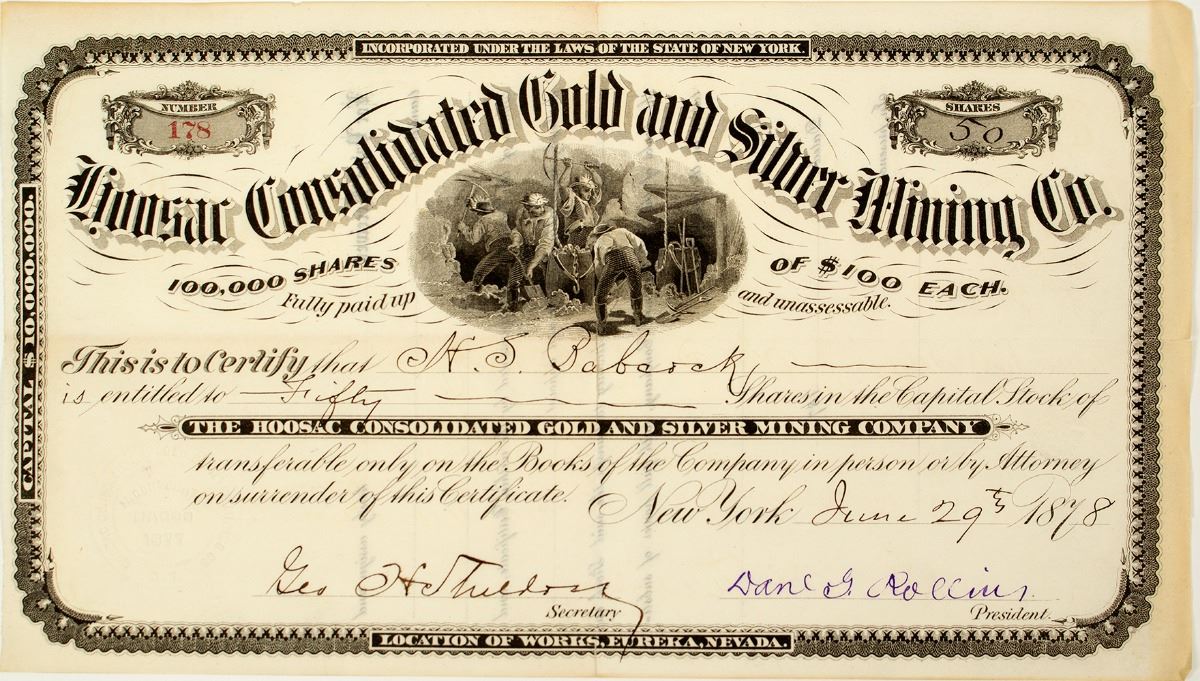 INCORPORATED UNDER THE LAWS OF THE STATE OF NEW YORK.
NUMBER
178
SHARES
50
Hoosac Consolidated Gold and Silver Mining Co.
100,000 SHARES OF $100 EACH.
Fully paid up and unassessable.
CAPITAL $10,000,000.
This is to Certify that H. S. Babcock
is entitled to Fifty Shares in the Capital Stock of
THE HOOSAC CONSOLIDATED GOLD AND SILVER MINING COMPANY
transferable only on the Books of the Company in person or by Attorney
on surrender of this Certificate.
New York June 29th 1878
Geo H Sheldon
Secretary
Danl G. Rollins
President.
LOCATION OF WORKS, EUREKA, NEVADA.